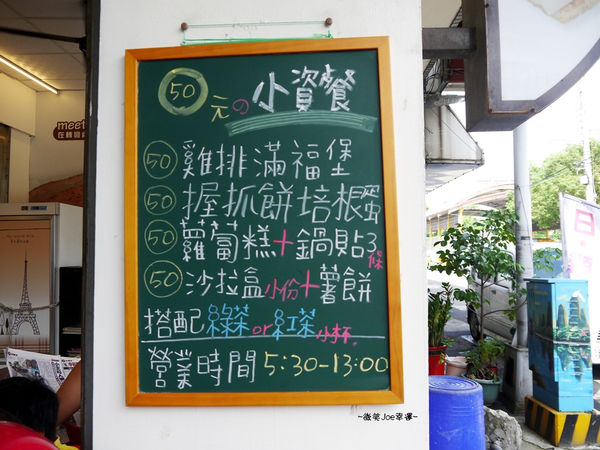 50元の小資餐
50 雞排滿福堡
50 握抓餅培根蛋
50 蘿蔔糕+鍋貼3條
50 沙拉盒小份+薯餅
搭配綠茶or紅茶小杯
營業時間5:30-13:00
~微笑Joe幸運~
meet